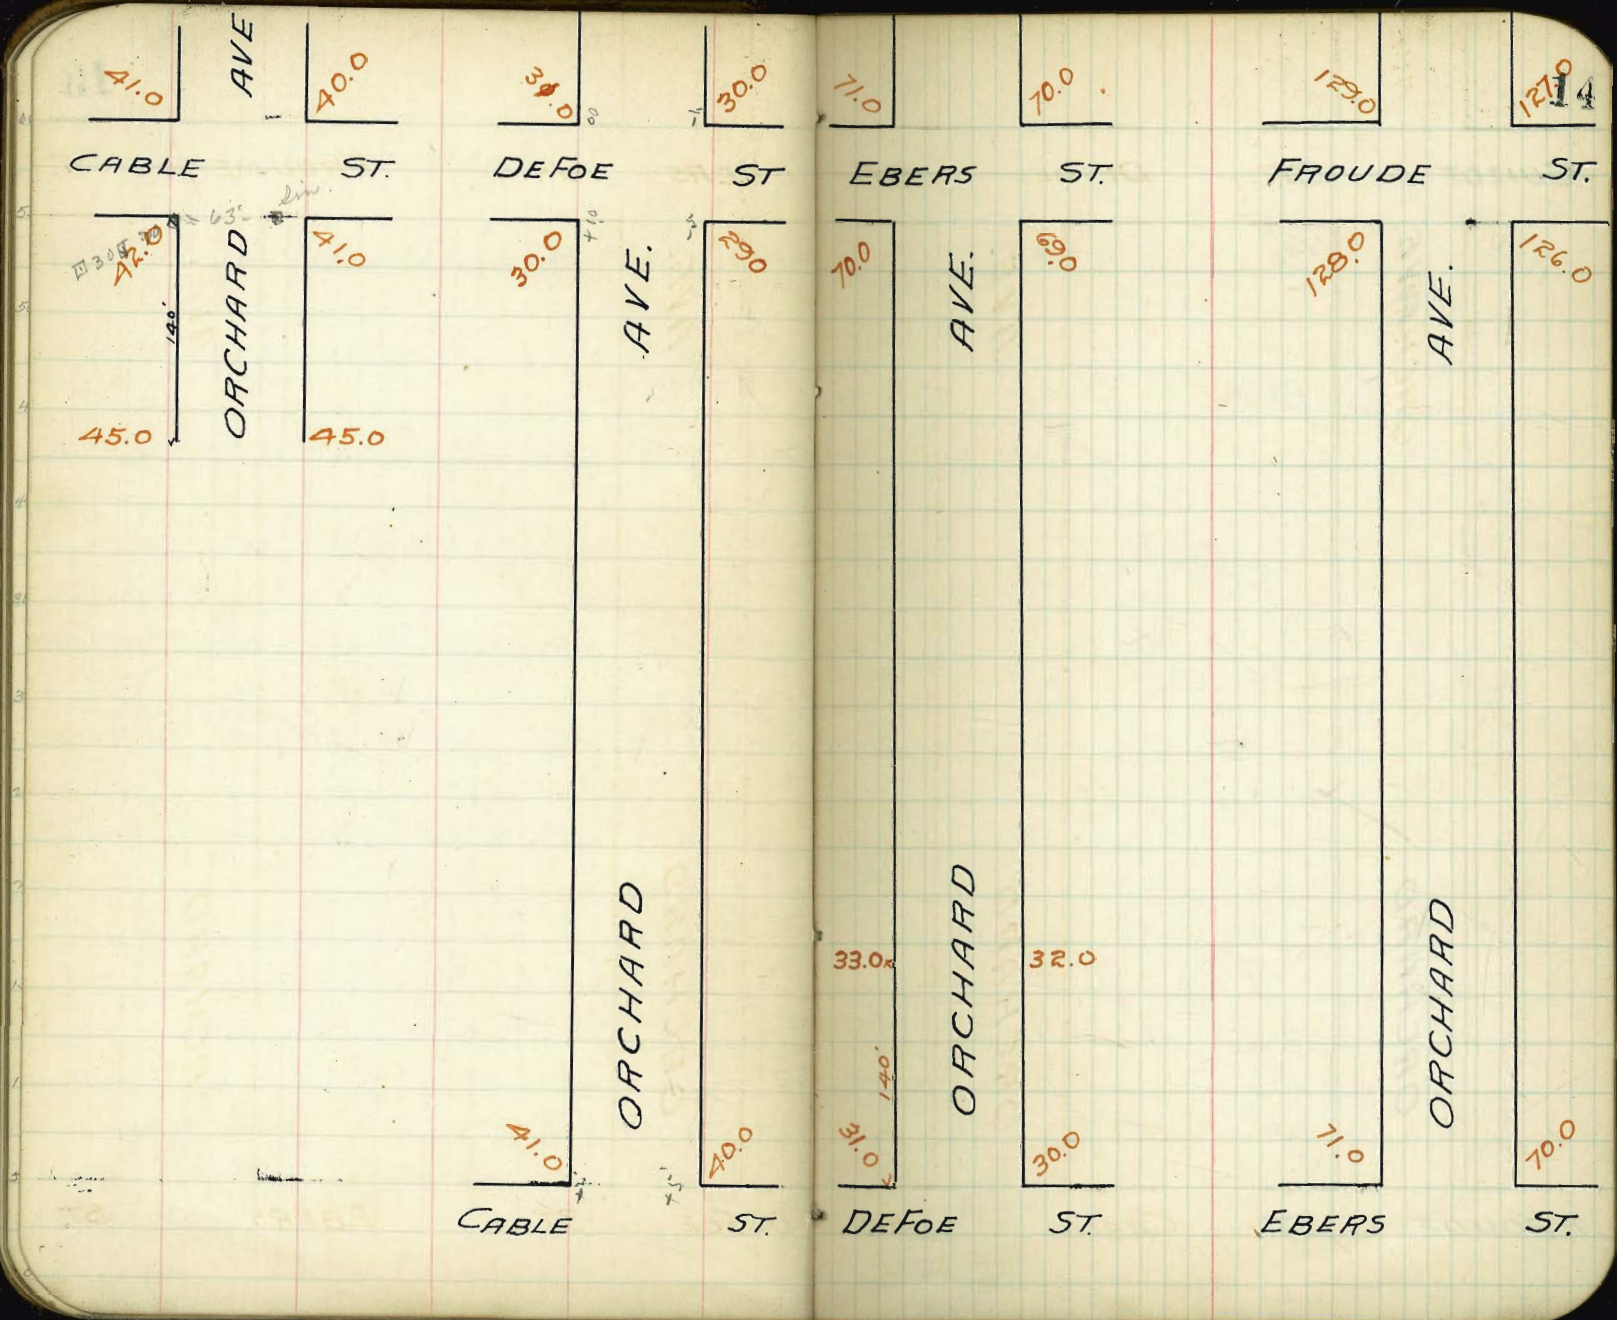 AVE
41.0 40.0 30.0 71.0 70.0 129.0 127.0 14
CABLE ST. DEFOE ST EBERS ST. FROUDE ST.
63' Line
42.0 41.0 30.0 29.0 70.0 69.0 128.0 126.0
140' ORCHARD AVE. AVE. AVE.
45.0 45.0
33.0 32.0
ORCHARD ORCHARD ORCHARD
140'
41.0 40.0 31.0 30.0 71.0 70.0
CABLE ST. DEFOE ST. EBERS ST.